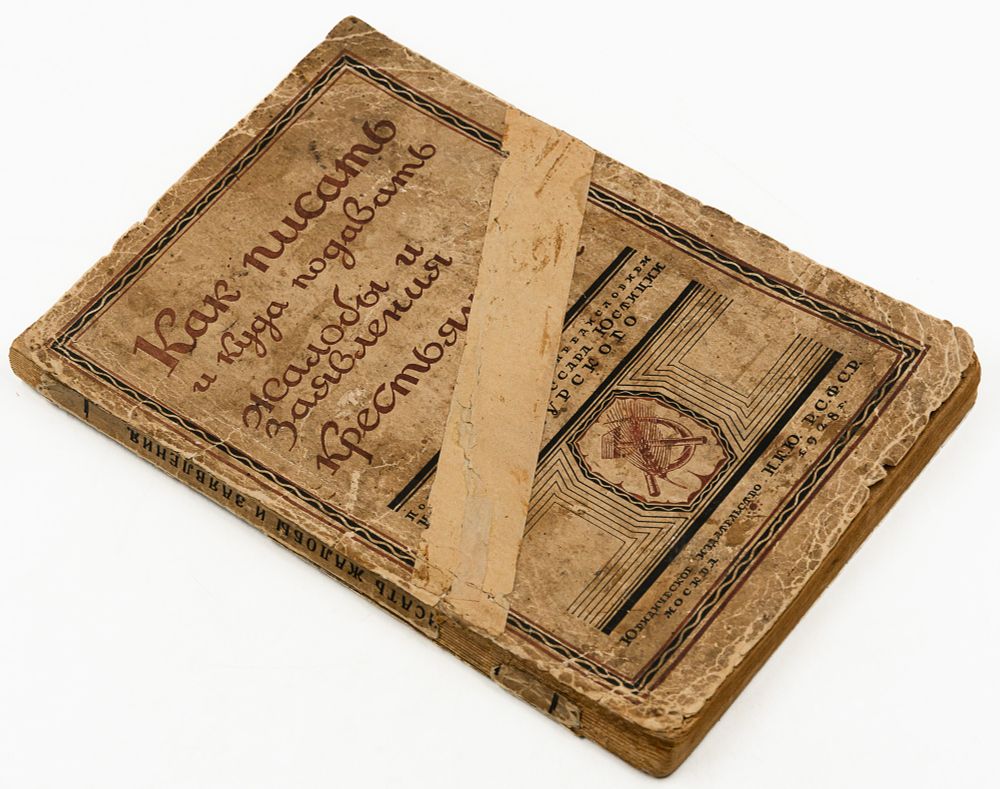 Как писать
и куда подавать
Жалобы и
Заявления
Крестья
ссара Юстиции
урского
Юридическое издательство Н.К.Ю. Р.С.Ф.С.Р.
Москва 1928 г.
ИСАТЬ ЖАЛОБЫ И ЗАЯВЛЕНИЯ.